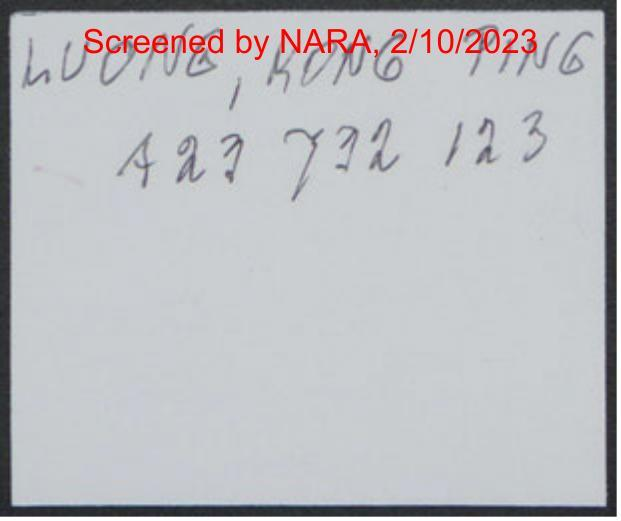 Screened by NARA, 2/10/2023
LUONG, KONG PING
A23 732 123